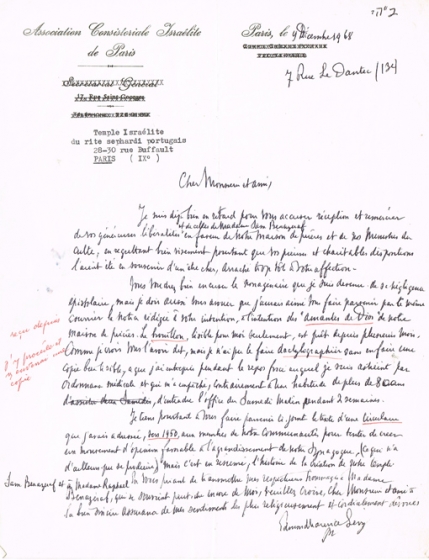 ב״ה
Association Consistoriale Israélite
de Paris
Paris, le 9 Décembre 1968
7 Rue Le Dantec /13e
Secrétariat Général
17, Rue Saint-Georges
Temple Israélite
du rite sephardi portugais
28-30 rue Buffault
PARIS (IXº)
Cher Monsieur et ami,
Je suis bien en retard pour vous accuser réception et remercier
de vos généreuses libéralités en faveur de notre maison de prières et de ses Ministres du
et de celles de Madame Sam Benazeraf
culte, en regrettant bien vivement pourtant que vos pieuses et charitables dispositions
l'aient été en souvenir d'un être cher, arraché trop tôt à votre affection.
Vous voudrez bien excuser le
épistolaire, mais je dois aussi vous avouer que j'aurais aimé vous faire parvenir par le même
courrier la notice rédigée à votre intention, à l'intention des "amantes de Dios" de notre
maison de prières. Le brouillon, lisible pour moi seulement, est prêt depuis plusieurs mois.
Comme je crois vous l'avoir dit, mais je n'ai pu le faire dactylographier sans en faire une
copie bien lisible, ce que j'ai entrepris pendant le repos forcé auquel je suis astreint par
ordonnance médicale et qui m'a empêché, contrairement à mes habitudes de plus de
d'entendre l'office du Samedi Matin pendant 2 semaines.
Je tiens pourtant à vous faire parvenir ci-joint le texte d'une circulaire
que j'avais adressée, vers 1950, aux membres de notre Communauté pour tenter de créer
un mouvement d'opinion favorable à l'agrandissement de notre Synagogue, (ce qui n'a
d'ailleurs pas se produire) mais c'est en résumé, l'histoire de la création de notre temple
Vous priant de transmettre mes respectueux hommages à Madame
Sam Benazeraf et à Madame Raphaël
Benazeraf, qui se souvient peut-être encore de moi, veuillez croire, Cher Monsieur et ami à
la bien sincère assurance de mes sentiments les plus religieusement et cordialement dévoués
reçue depuis
copie